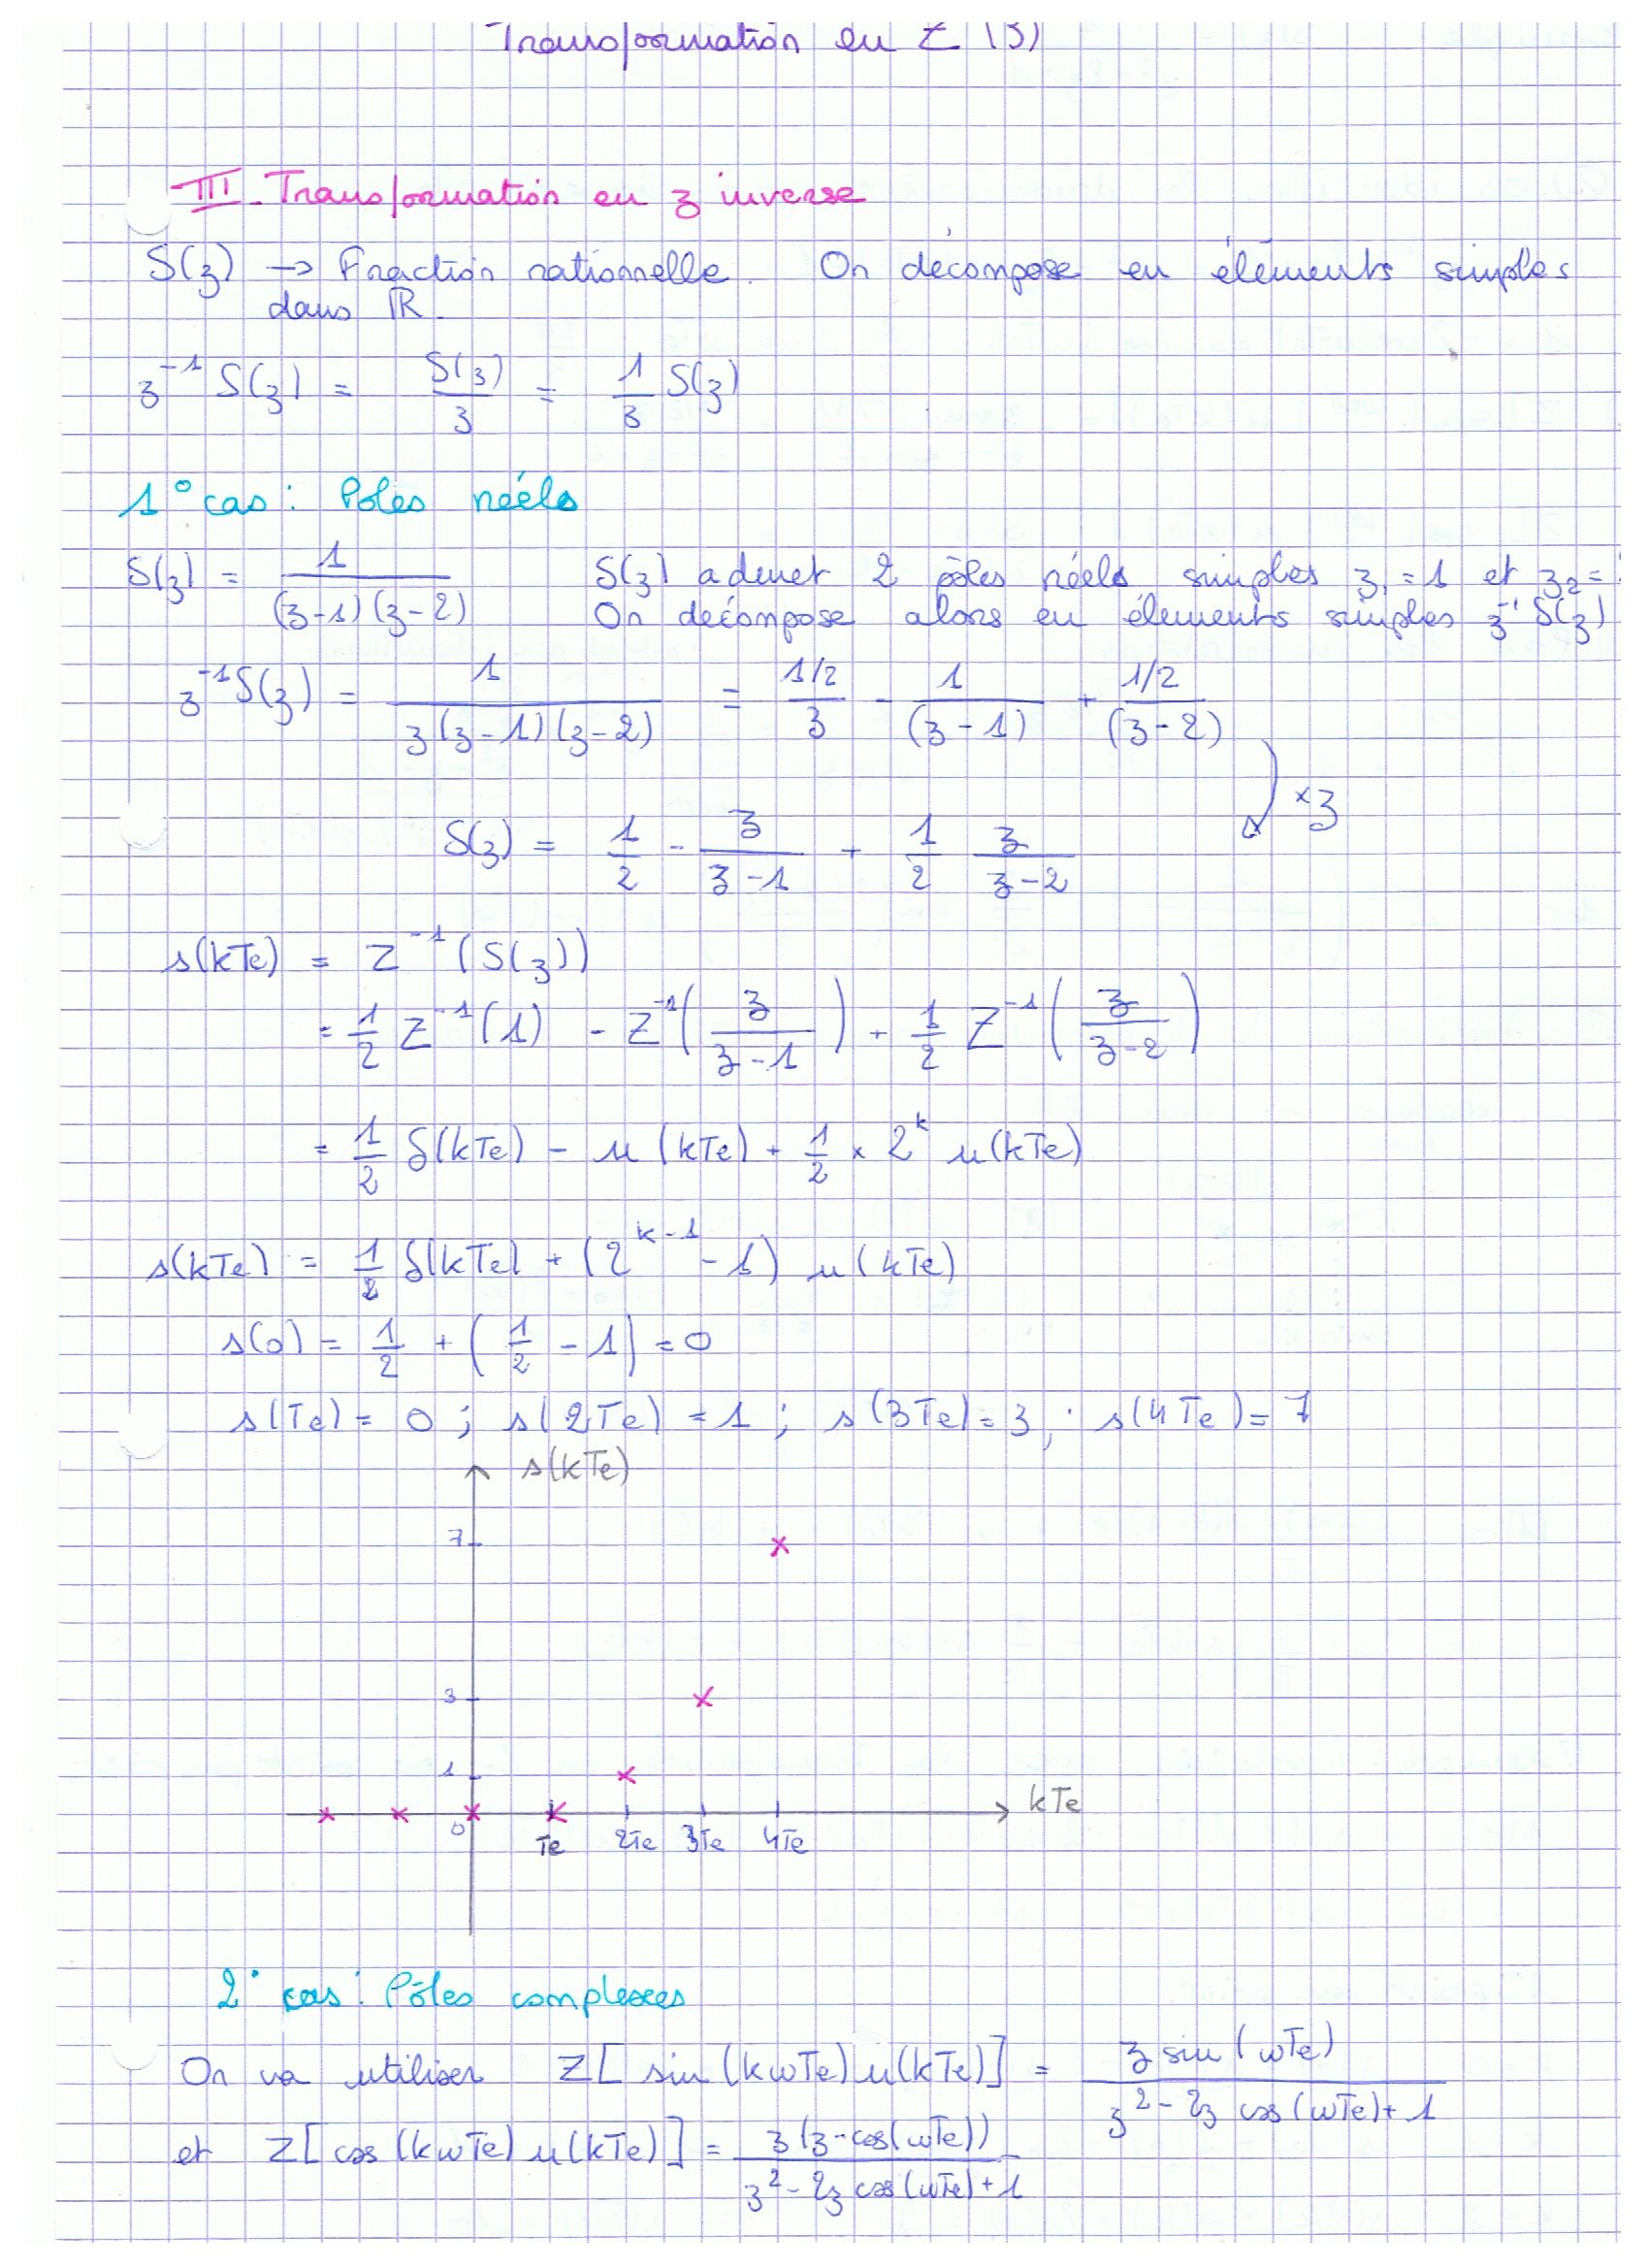 Transformation en Z (3)
III. Transformation en z inverse
S(z) → Fraction rationnelle. On décompose en éléments simples
dans ℝ.
z⁻¹ S(z) = S(z)/z = 1/z S(z)
1° cas : Pôles réels
S(z) = 1/((z-1)(z-2)) S(z) admet 2 pôles réels simples z₁ = 1 et z₂ =
On décompose alors en élements simples z⁻¹ S(z)
z⁻¹S(z) = 1/(z(z-1)(z-2)) = (1/2)/z - 1/(z-1) + (1/2)/(z-2)
×z
S(z) = 1/2 - z/(z-1) + 1/2 z/(z-2)
s(kTe) = Z⁻¹(S(z))
= 1/2 Z⁻¹(1) - Z⁻¹(z/(z-1)) + 1/2 Z⁻¹(z/(z-2))
= 1/2 δ(kTe) - u(kTe) + 1/2 × 2ᵏ u(kTe)
s(kTe) = 1/2 δ(kTe) + (2ᵏ⁻¹ - 1) u(kTe)
s(0) = 1/2 + (1/2 - 1) = 0
s(Te) = 0 ; s(2Te) = 1 ; s(3Te) = 3 ; s(4Te) = 7
s(kTe)
7
3
1
kTe
0 Te 2Te 3Te 4Te
2° cas : Pôles complexes
On va utiliser Z[sin(kωTe)u(kTe)] = z sin(ωTe)/(z² - 2z cos(ωTe) + 1)
et Z[cos(kωTe)u(kTe)] = z(z-cos(ωTe))/(z² - 2z cos(ωTe) + 1)